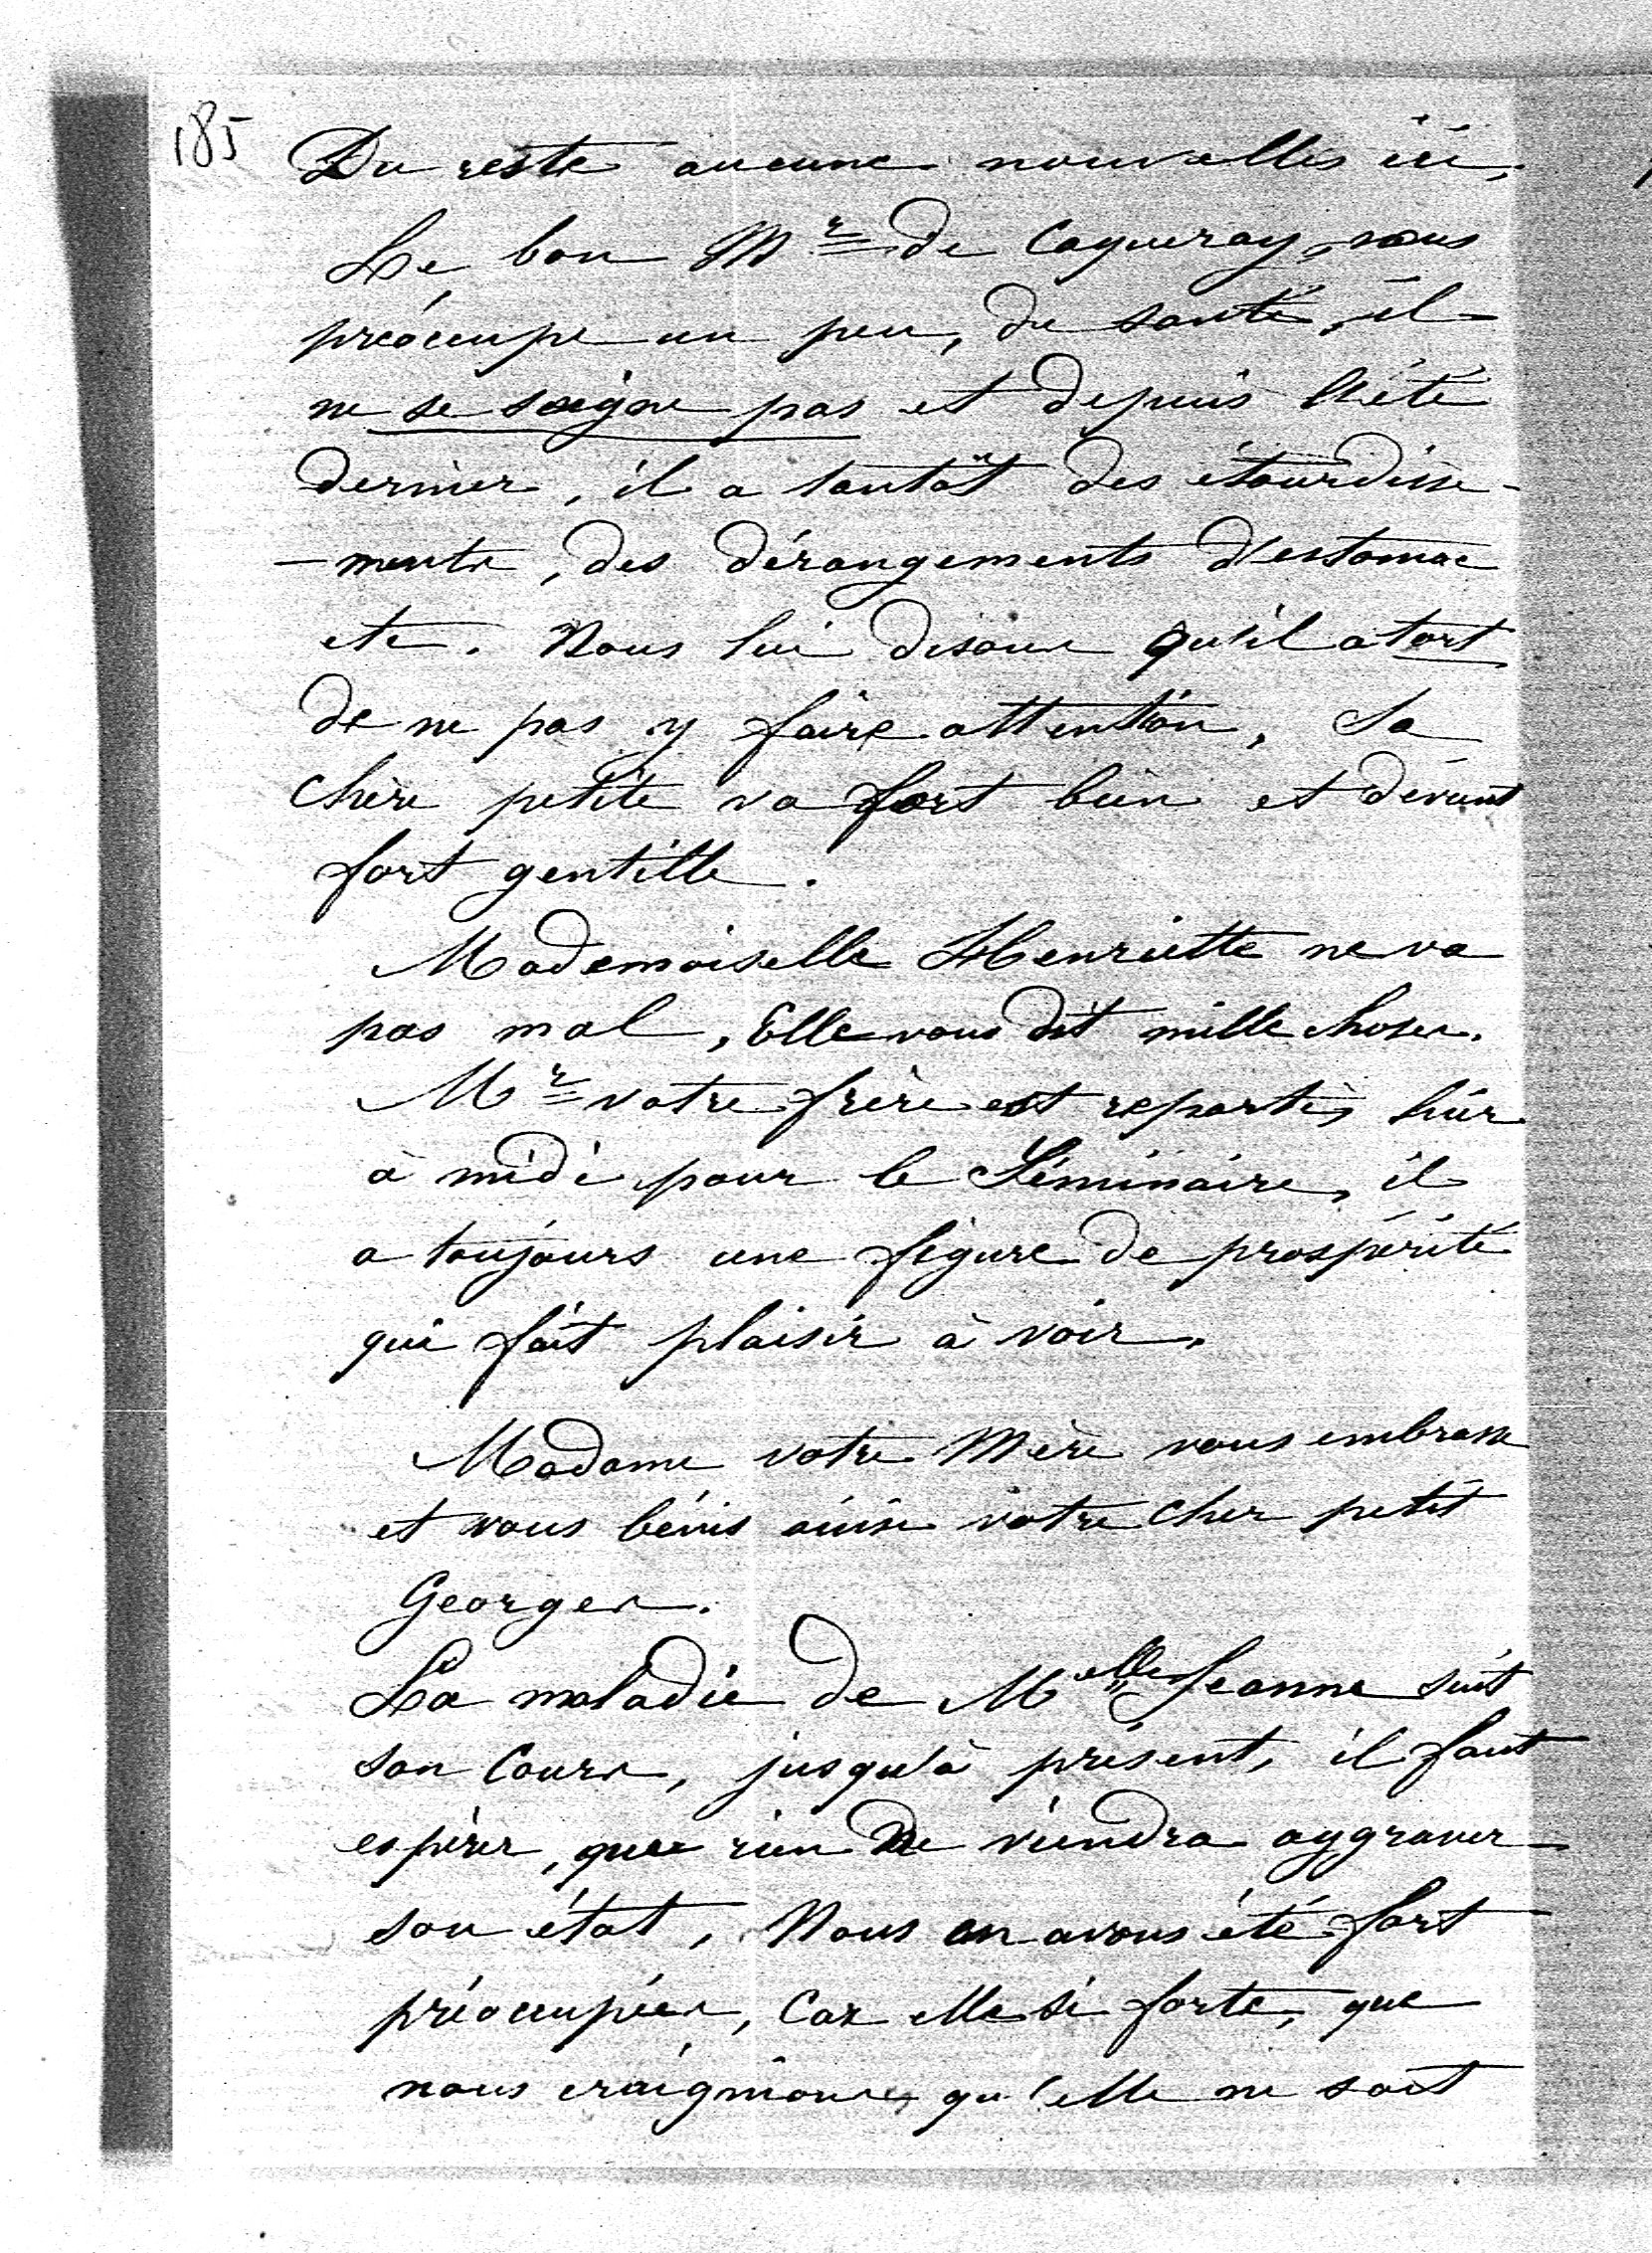 185
Du reste aucune nouvelles ici,
Le bon Mr de Caqueray, nous
préocupe un peu, de santé, il
ne se soigne pas et depuis l'été
dernier, il a tantôt des étourdisse-
-ments, des dérangements d'estomac
etc. Nous lui disons qu'il a tort
de ne pas y faire attention, Sa
chère petite va fort bien et dévient
fort gentille.
Mademoiselle Henriette ne va
pas mal, Elle vous dit mille choses.
Mr votre frère est reparti, hier
à midi pour le Séminaire, il
a toujours une figure de prospérité
qui fait plaisir à voir.
Madame votre Mère vous embrasse
et vous bénis ainsi votre cher petit
Georges.
La maladie de Melle Jeanne suit
son Cours, jusqu'à présent, il faut
espérer, que rien Ne viendra aggraver
son état, Nous en avons été fort
préoccupées, Car elle si forte, que
nous craignions, qu'elle ne soit